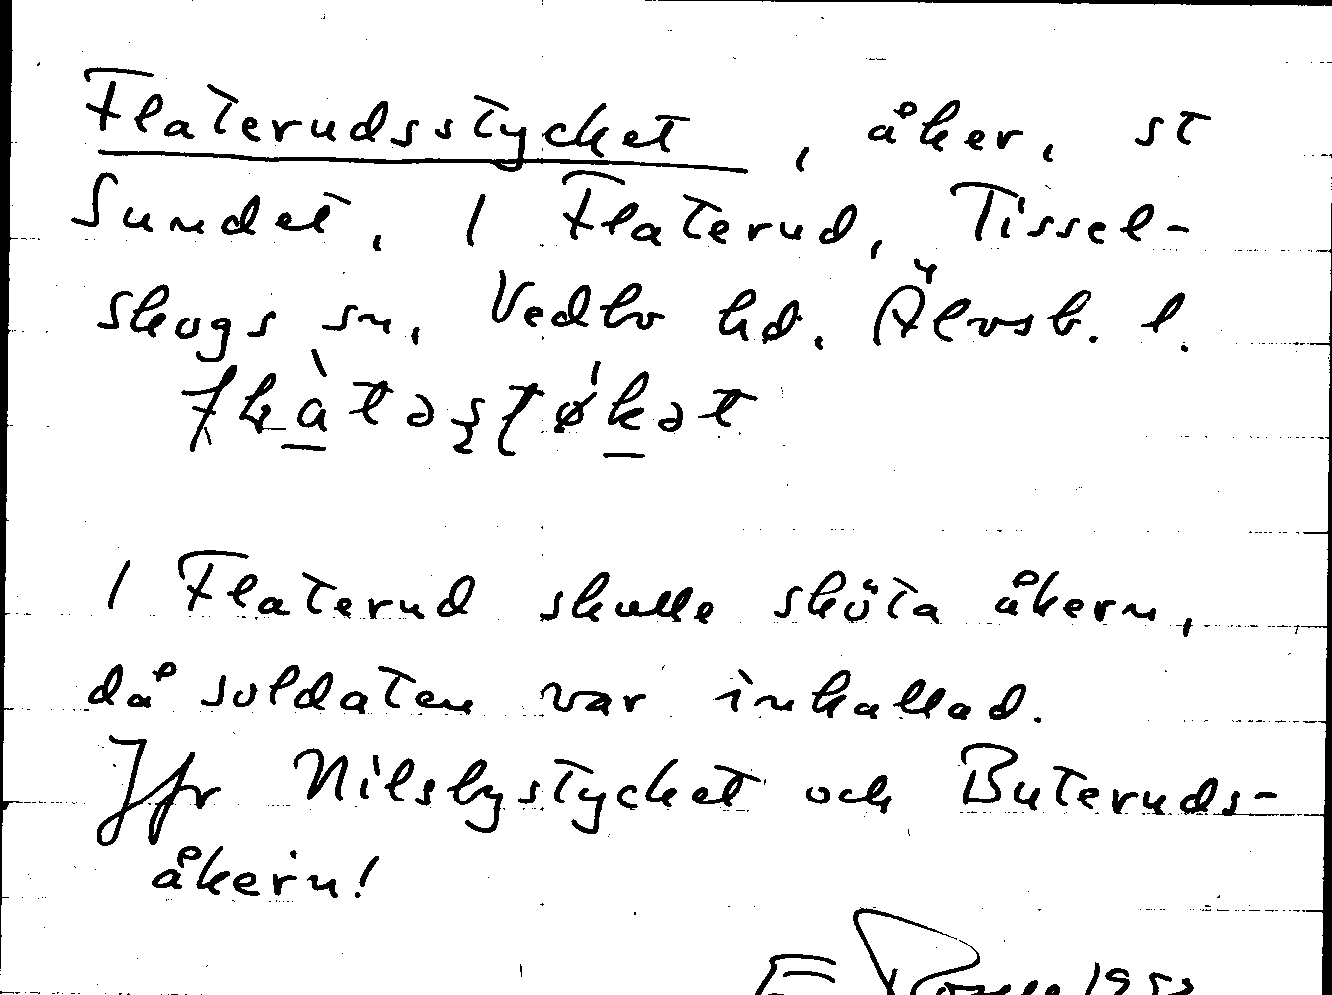 Flaterudsstycket, åker, st
Sundet, 1 Flaterud, Tissel-
skogs sn, Vedbo hd. Älvsb. l.
1 Flaterud skulle sköta åkern,
då soldaten var inkallad.
Jfr Nilsbystycket och Buteruds-
åkern!